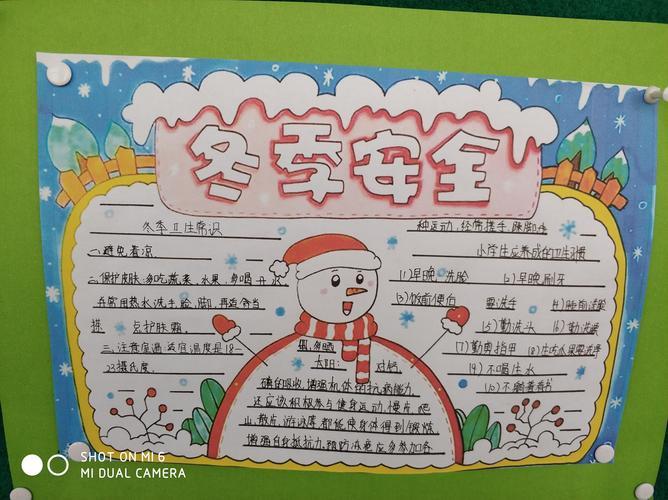 冬季安全
冬季卫生常识
一、避免着凉
二、保护皮肤:多吃蔬菜、水果,多喝开水
并常用热水洗手、脸、脚,再适当
搽 豆护肤霜.
三、注意室温:适宜温度是18—
23摄氏度.
想,多晒
太阳:对钙、
磷的吸收,增强机体的抗病能力
还应该积极参与健身运动,慢步、爬
山、散步、游泳等都能使身体得到锻炼
增强自身抵抗力,预防冻疮应多参加各
种运动,经常搓手、跺脚等
小学生应养成的卫生习惯
(1)早晚洗脸 (2)早晚刷牙
(3)饭前便后 要洗手 (4)睡前洗脚
(5)勤洗头 (6)勤洗澡
(7)勤剪指甲 (8)生吃水果要洗净
(9)不喝生水
(10)不躺着看书
SHOT ON MI 6
MI DUAL CAMERA